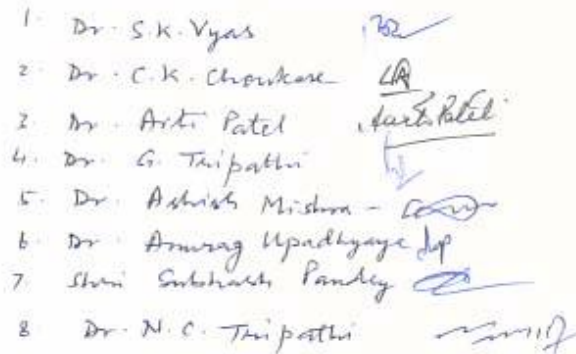 1. Dr. S.K. Vyas
2. Dr. C.K. Choukase
3. Dr. Arti Patel Aarti Patel
4. Dr. G. Tripathi
5. Dr. Ashish Mishra -
6. Dr. Anurag Upadhyaye
7 Shri Subhash Pandey
8 Dr. N.C. Tripathi